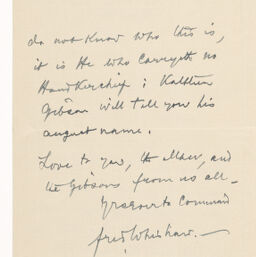 do not know who this is,
it is He who carryeth no
Handkerchief ; Kathleen
Gibson will tell you his
august name.
Love to you, the Maw, and
the Gibsons from us all _
Yrs ever to command
Fred Whishaw. _